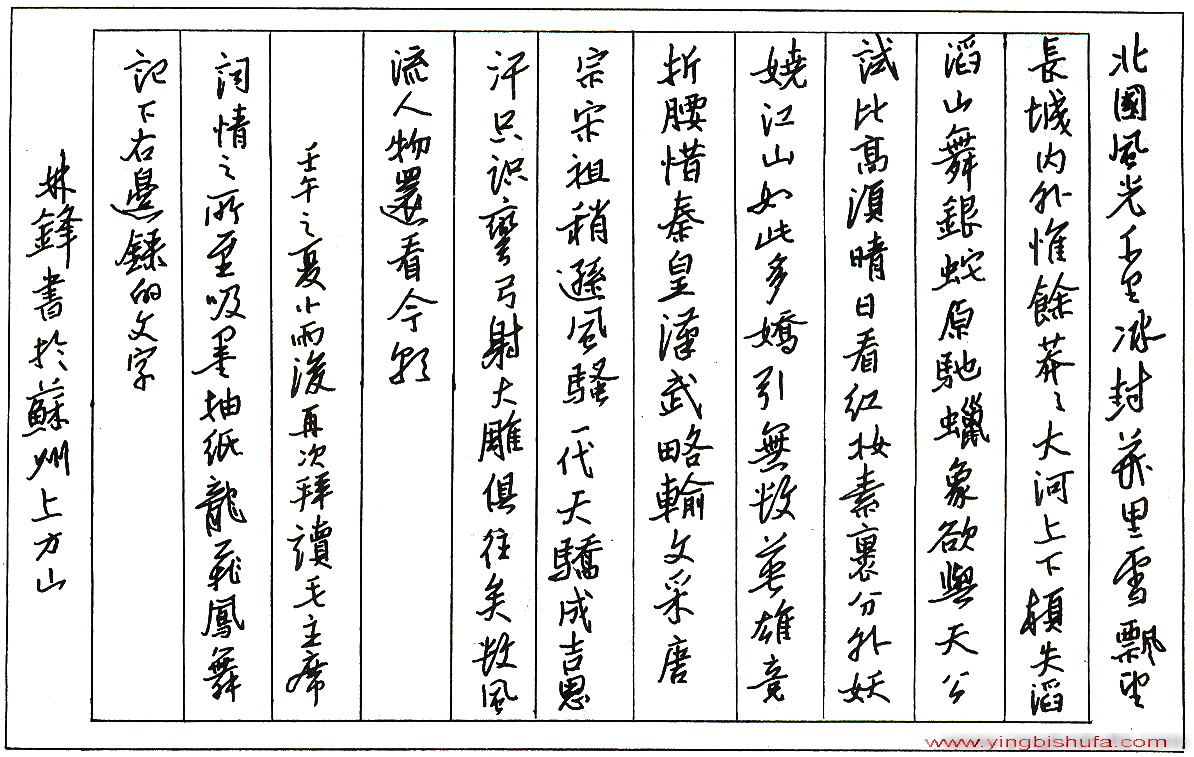 北國風光千里冰封萬里雪飄望
長城内外惟餘莽々大河上下頓失滔
滔山舞銀蛇原馳蠟象欲與天公
試比高須晴日看红妆素裹分外妖
嬈江山如此多嬌引無数英雄竞
折腰惜秦皇漢武略輸文采唐
宗宋祖稍遜風騷一代天驕成吉思
汗只识彎弓射大雕俱往矣数風
流人物還看今朝
壬午之夏小雨後再次拜讀毛主席
词情之所至吸墨抽纸龍飛鳳舞
記下右邊録的文字
林鋒書於蘇州上方山
www.yingbishufa.com